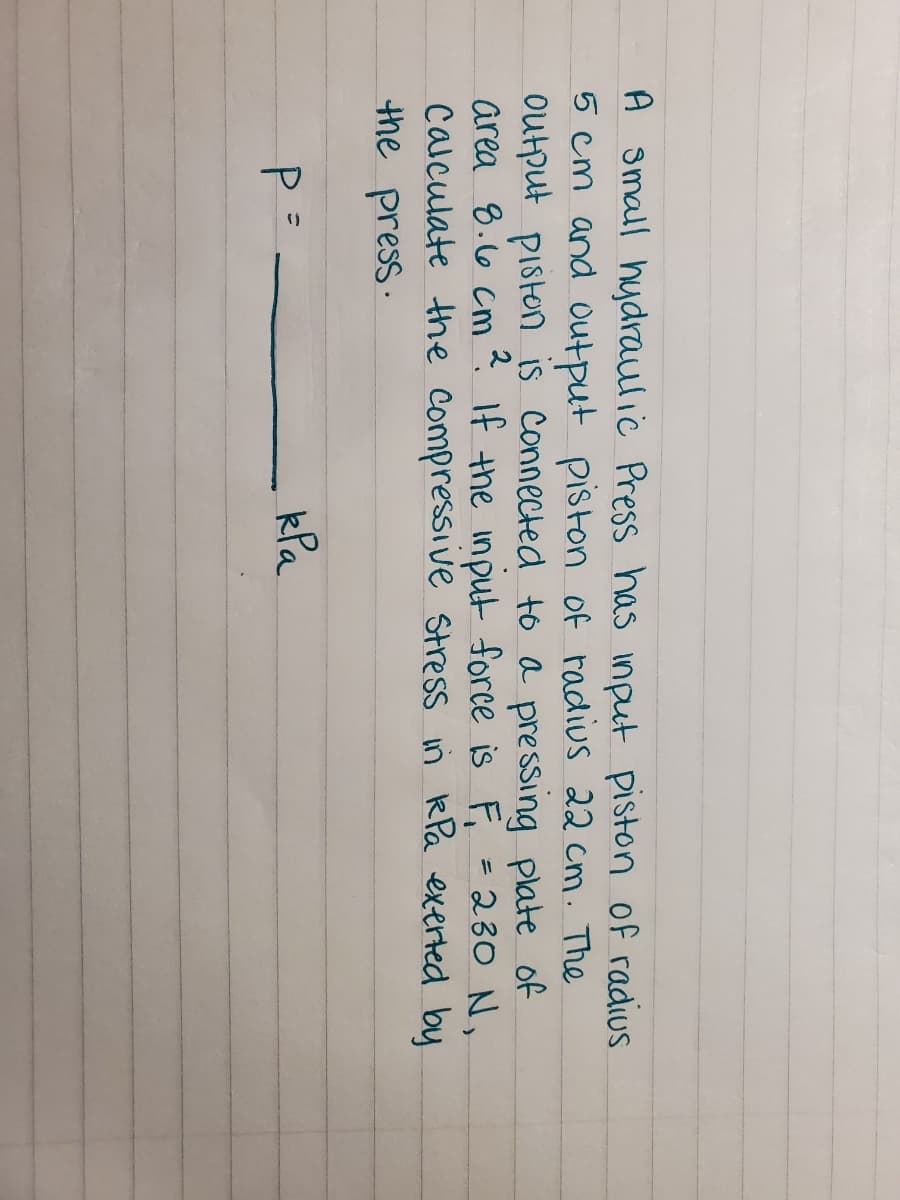 A small hydraulic Press has input piston of radius
5 cm and output piston of radius 22 cm. The
output piston is connected to a pressing plate of
area 8.6 cm². If the input force is F₁ = 230 N,
Calculate the compressive stress in kPa exerted by
the press.
P = ______ kPa